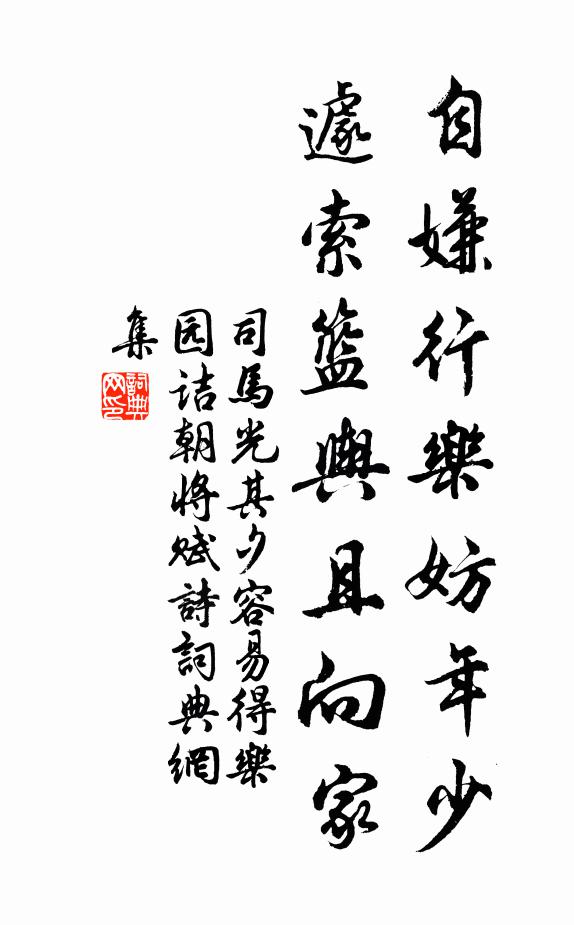 自嫌行樂妨年少
遽索籃輿且向家
司馬光其夕容易得樂
园詰朝將赋詩詞典網
集
詞典
网印